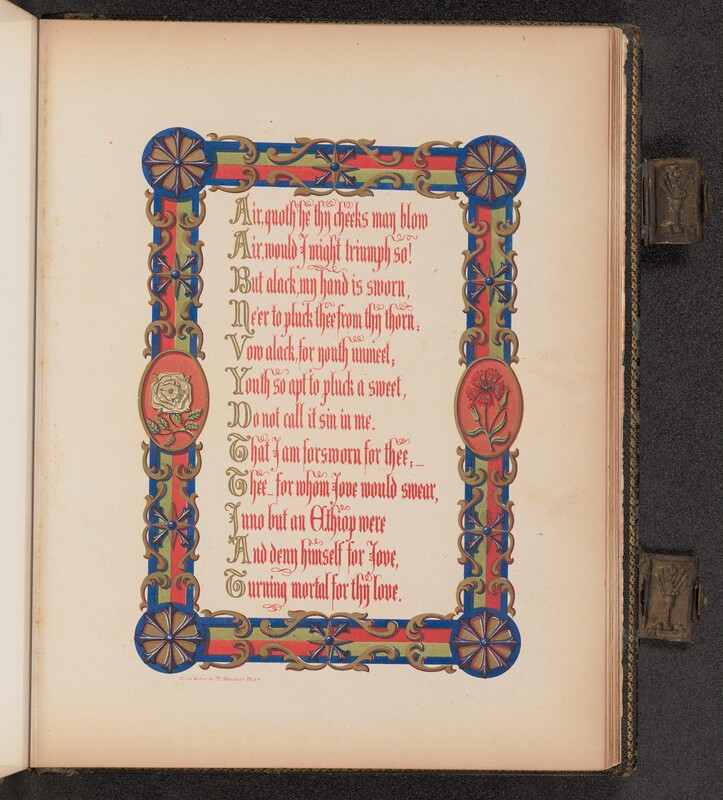 Air, quoth he thy cheeks may blow
Air, would I might triumph so!
But alack, my hand is sworn,
Ne'er to pluck thee from thy thorn;
Vow alack, for youth unmeet;
Youth so apt to pluck a sweet,
Do not call it sin in me.
That I am forsworn for thee;_
Thee_ for whom Jove would swear,
Juno but an Ethiop were
And deny himself for Jove,
Turning mortal for thy love.